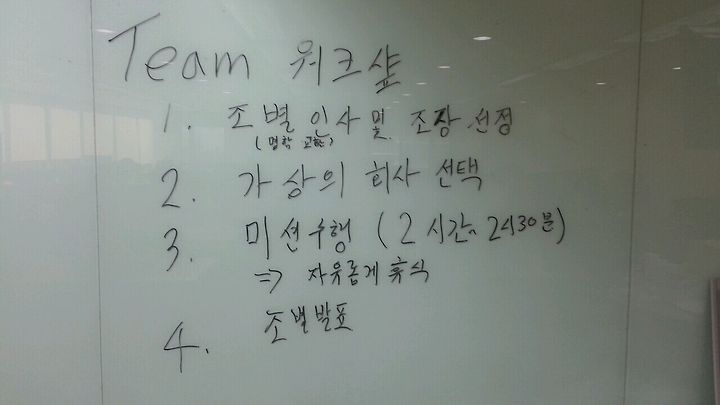 Team 워크샾
1. 조별 인사 및 조장 선정
(명함 교환)
2. 가상의 회사 선택
3. 미션수행 (2시간~2시30분)
⇒ 자유롭게 휴식
4. 조별발표